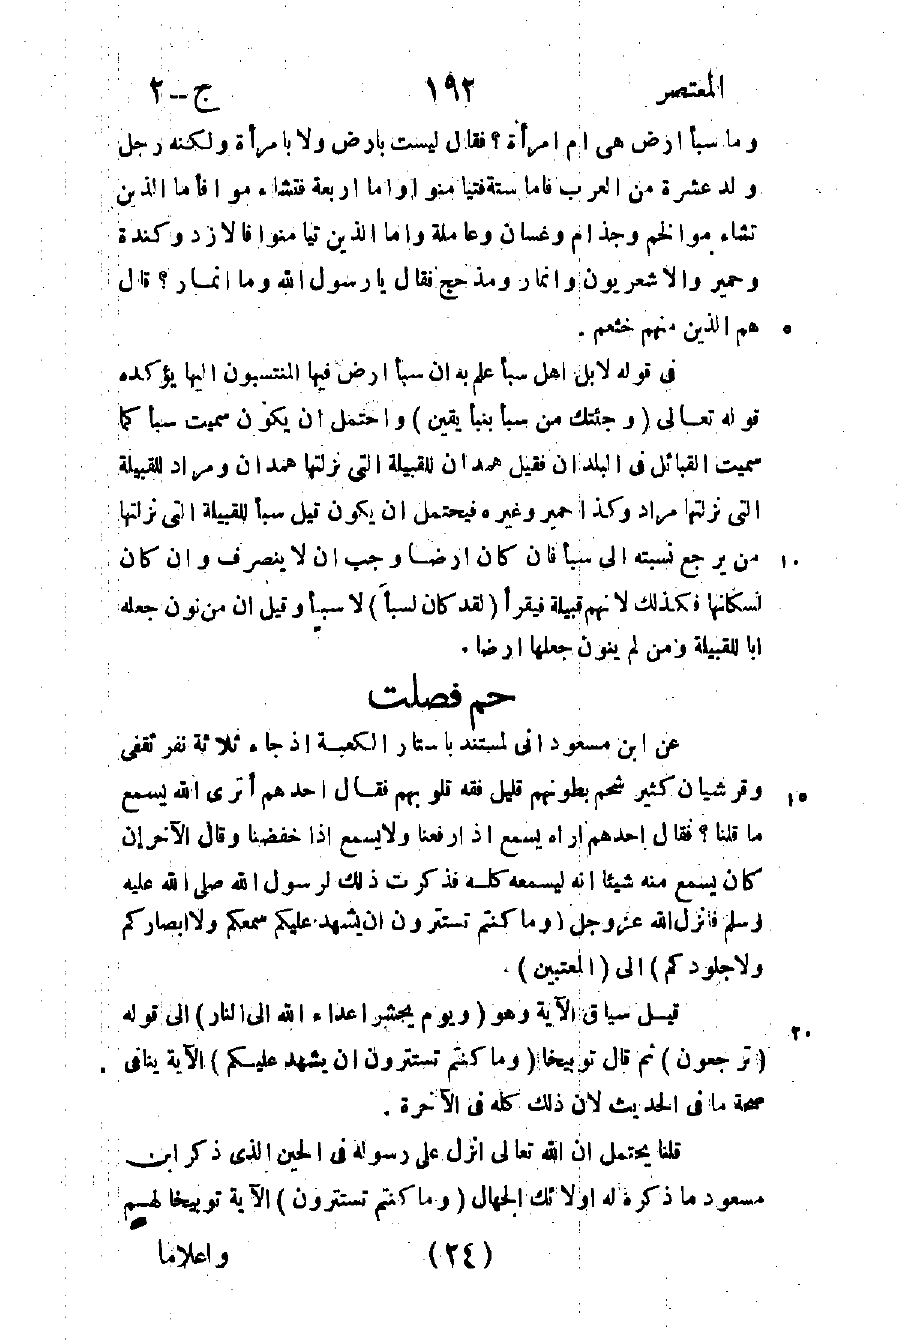 المعتصر ١٩٢ ج-٢
وما سبأ ارض هى ام امرأة ؟ فقال ليست بارض ولا بامرأة ولكنه رجل
ولد عشرة من العرب فاما ستة فتيامنوا واما اربعة فتشاءموا فأما الذين
تشاءموا لخم وجذام وغسان وعاملة واما الذين تيامنوا فالازد وكندة
وحمير والاشعريون وانمار ومذحج فقال يا رسول الله وما انمار ؟ قال
هم الذين منهم خثعم . ٥
فى قوله لابل اهل سبأ علم به ان سبأ ارض فيها المنتسبون اليها يؤكده
قوله تعالى ( وجئتك من سبأ بنبأ يقين ) واحتمل ان يكون سميت سبأ كما
سميت القبائل فى البلدان فقيل همدان للقبيلة التى نزلتها همدان ومراد للقبيلة
التى نزلتها مراد وكذا حمير وغيره فيحتمل ان يكون قيل سبأ للقبيلة التى نزلتها
من يرجع نسبته الى سبأ فان كان ارضا وجب ان لا ينصرف وان كان ١٠
لسكانها فكذلك لانهم قبيلة فيقرأ ( لقد كان لسبأ ) لا سبأ وقيل ان من نون جعله
ابا للقبيلة ومن لم ينون جعلها ارضا .
حم فصلت
عن ابن مسعود انى لمستند باستار الكعبة اذ جاء ثلاثة نفر ثقفى
وقرشيان كثير شحم بطونهم قليل فقه قلوبهم فقال احدهم أترى الله يسمع ١٥
ما قلنا ؟ فقال احدهم اراه يسمع اذ ارفعنا ولا يسمع اذا خفضنا وقال الآخر إن
كان يسمع منه شيئا انه ليسمعه كله فذكرت ذلك لرسول الله صلى الله عليه
وسلم فانزل الله عزوجل ( وما كنتم تستترون ان يشهد عليكم سمعكم ولا ابصاركم
ولا جلودكم ) الى ( المعتبين ) .
قيل سياق الآية وهو ( ويوم يحشر اعداء الله الى النار ) الى قوله ٢٠
( ترجعون ) ثم قال توبيخا ( وما كنتم تستترون ان يشهد عليكم ) الآية ينافى
صحة ما فى الحديث لان ذلك كله فى الآخرة .
قلنا يحتمل ان الله تعالى انزل على رسوله فى الحين الذى ذكر ابن
مسعود ما ذكره له اولائك الجهال ( وما كنتم تستترون ) الآية توبيخا لهم
(٢٤) واعلاما